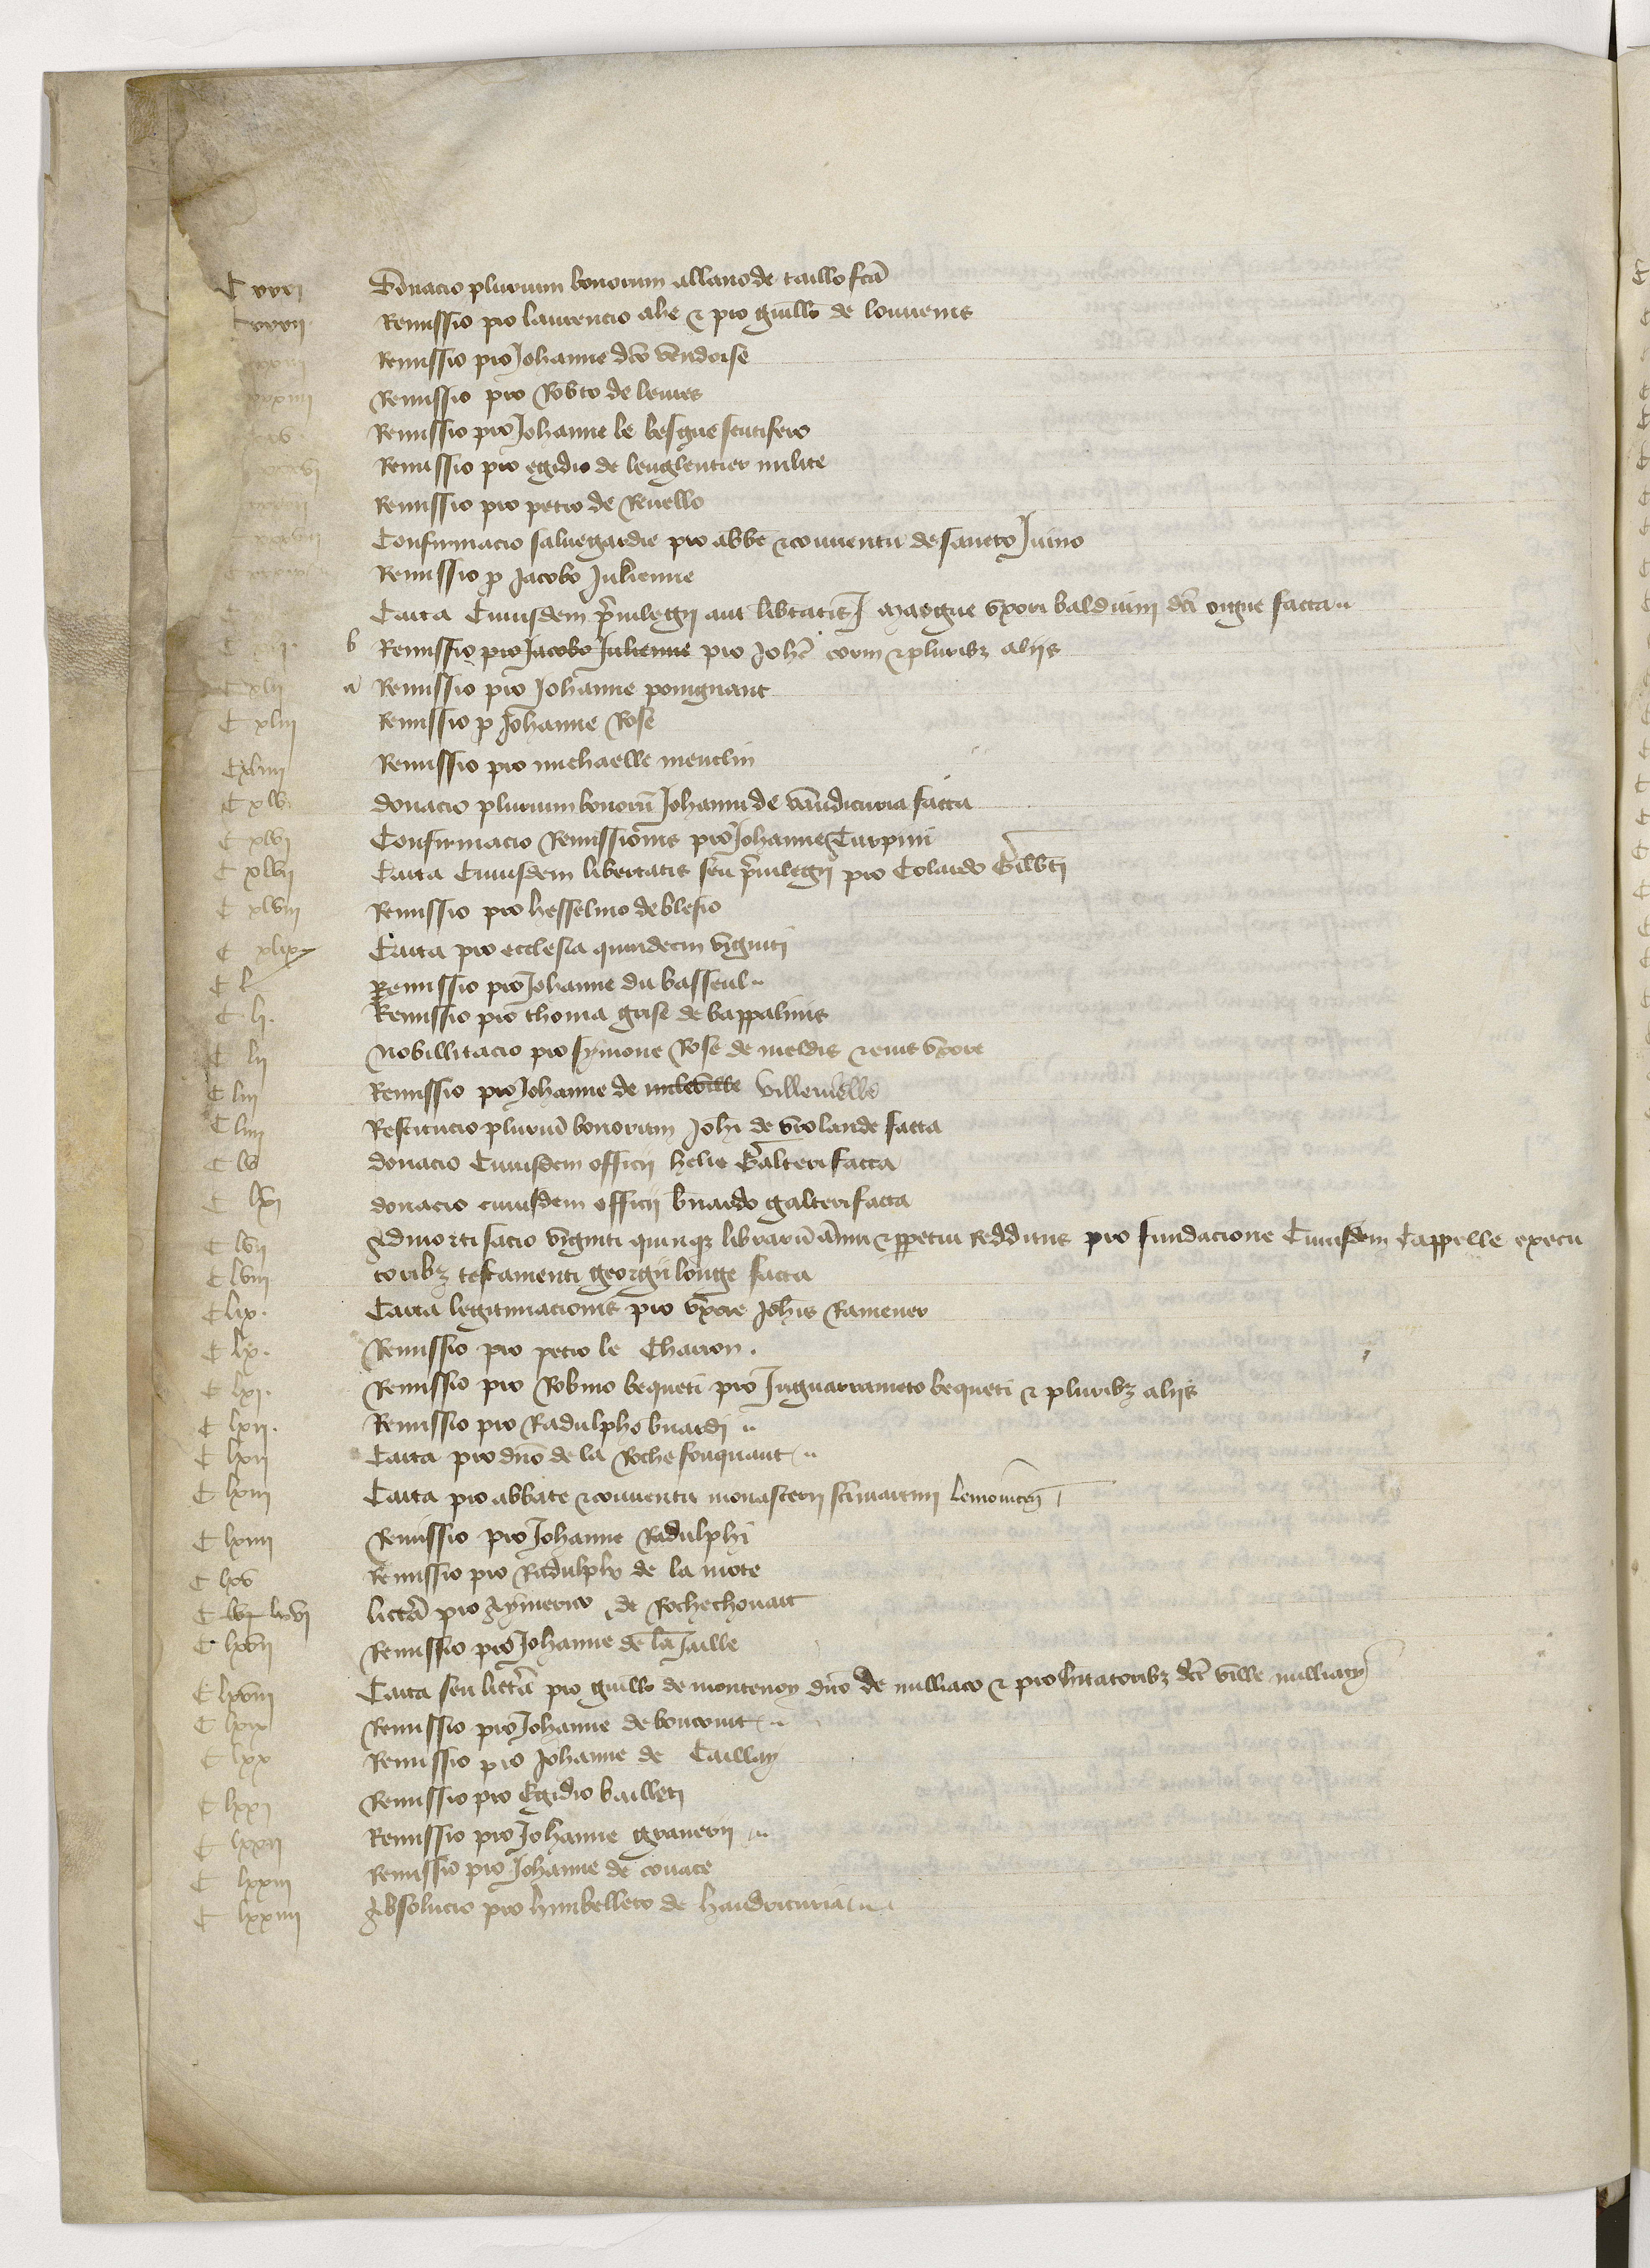 C xxxi Donacio plurium bonorum allano de taillo fca
C xxxii Remissio pro laurencio abe & pro guillo de louvenis
Remissio pro Johanne dco vendoise
xxxiiii Remissio pro Robto de lenies
Remissio pro Johanne le besgue scutifero
xxxvi Remissio pro egidio de lenglentier milite
xxxvii Remissio pro petro de Revello
xxxviii Confirmacio salvegardie pro abbe & conventu de sancto Juino
Remissio p Jacobo Julienne
C Carta Cuiusdem privilegii aut libtatis margue uxori balduini dci orgue facta
C xli b Remissio pro Jacobo Julienne pro Johe corm & pluribz aliis
C xlii a Remissio pro Johanne poingnant
C xliii Remissio p Johanne Rose
C xliiii Remissio pro michaelle menclin
C xlv donacio plurium bonoru Johanni de vaudicuria facta
C xlvi Confirmacio Remissionis pro Johanne Turpini
C xlvii Carta Cuiusdem libertatis seu privilegii pro Colardo Gilbti
C xlviii Remissio pro hesselino de blesio
C xlix Carta pro ecclesia quindecim viginti
C l Remissio pro Johanne du basseul
C li Remissio pro thoma grise de bappalmis
C lii Nobillitacio pro symone Rose de meldis & eius uxore
C liii Remissio pro Johanne de milevile villemelle
C liiii Restitucio pluriu bonorum Johi de violande facta
C lv donacio Cuiusdem officii helie Galteri facta
C lvi donacio cuiusdem officii bnardo galteri facta
C lvii Admortisacio viginti quinqz libraru annui & ppetui Redditus pro fundacione Cuiusdem Cappelle execu
C lviii toribz testamenti georgii longe facta
C lix Carta legitimacionis pro uxore Johis Ramener
C lx Remissio pro petro le Charron
C lxi Remissio pro Robino bequeti pro Inguerrameto bequeti & pluribz aliis
C lxii Remissio pro Radulpho bnardi
C lxii Carta pro dno de la Roche fouquaut
C lxiii Carta pro abbate & conventu monasterii sci martini lemovicen
C lxiiii Remissio pro Johanne Radulphi
C lxv Remissio pro Radulpho de la mote
C lvi lxvi littera pro Aymerico de Rochechouart
C lxvii Remissio pro Johanne de la Jaille
C lxviii Carta seu littera pro guillo de montenoy dno de milliaco & pro hitatoribz dce ville milliacy
C lxix Remissio pro Johanne de boucourt
C lxx Remissio pro Johanne de Caillay
C lxxi Remissio pro Egidio bailleti
C lxxii Remissio pro Johanne granerii
C lxxiii Remissio pro Johanne de couate
C lxxiiii Absolucio pro himbelleto de hardricuria